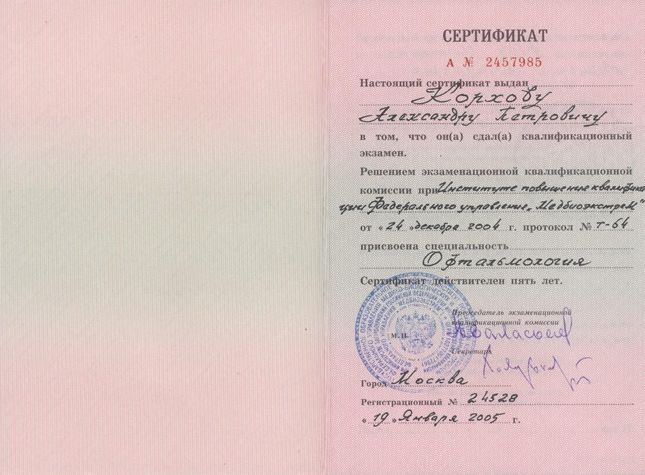 СЕРТИФИКАТ
А № 2457985
Настоящий сертификат выдан
Корхову
Александру Петровичу
в том, что он(а) сдал(а) квалификационный
экзамен.
Решением экзаменационной квалификационной
комиссии при Институте повышение квалифика
ции Федерального управление „Медбиоэкстрем"
от «24» декабря 2004 г. протокол № Т-64
присвоена специальность
Офтальмология
Сертификат действителен пять лет.
Председатель экзаменационной
квалификационной комиссии
М.П.
Секретарь
Город Москва
Регистрационный № 24528
«19» Января 2005 г.